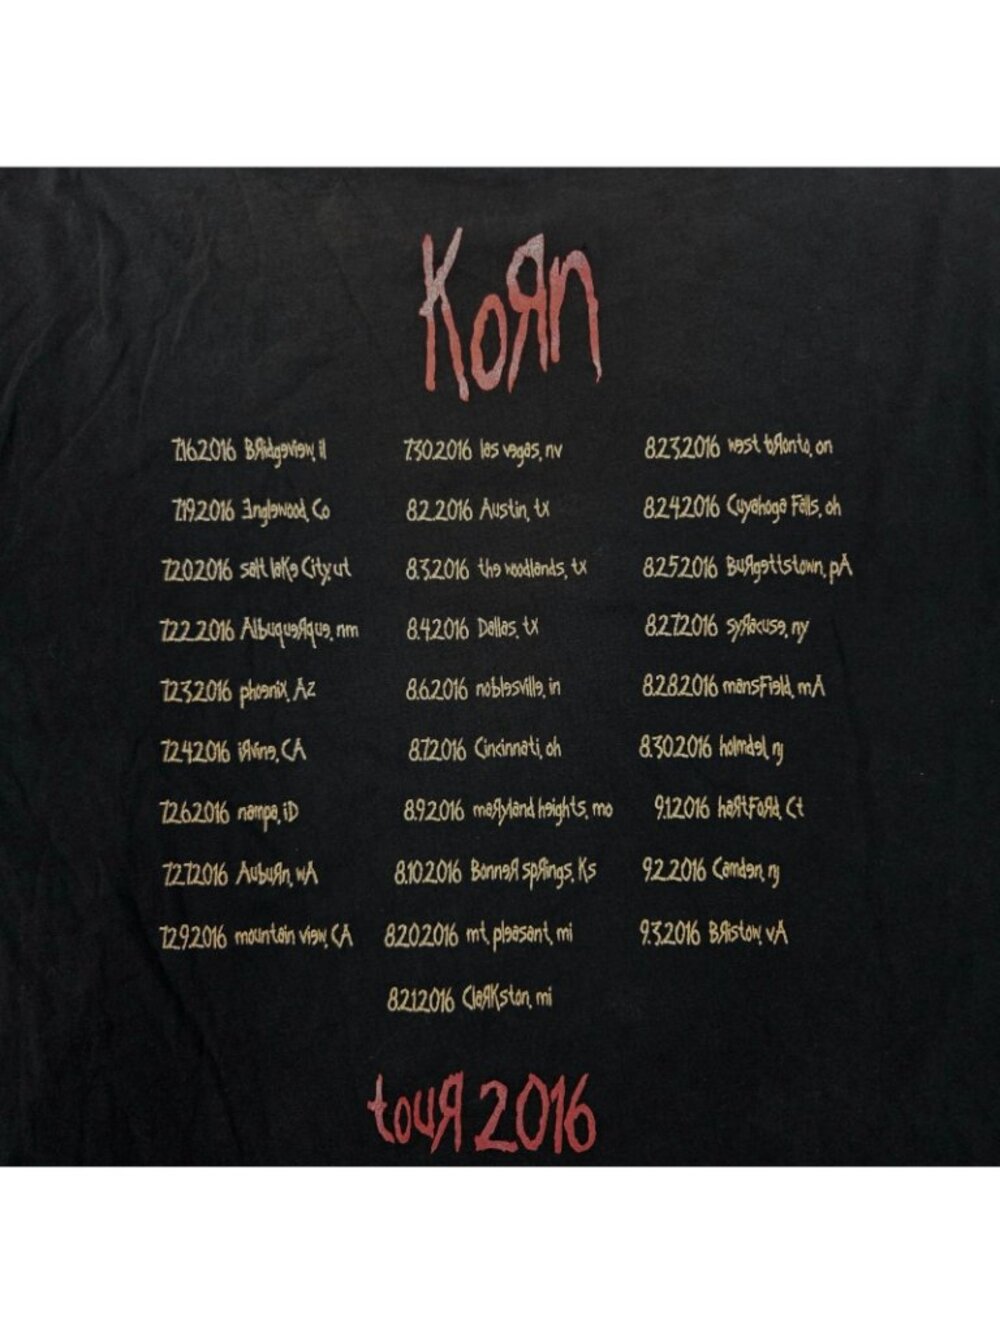 KoЯn
7.16.2016 BЯidgeview, il
7.19.2016 Englewood, Co
7.20.2016 salt laKe City, ut
7.22.2016 AlbuqueЯque, nm
7.23.2016 phoenix, AZ
7.24.2016 iЯvine, CA
7.26.2016 nampa, iD
7.27.2016 AubuЯn, wA
7.29.2016 mountain view, CA
7.30.2016 las vegas, nv
8.2.2016 Austin, tx
8.3.2016 the woodlands, tx
8.4.2016 Dallas, tx
8.6.2016 noblesville, in
8.7.2016 Cincinnati, oh
8.9.2016 maЯyland heights, mo
8.10.2016 BonneЯ spЯings, Ks
8.20.2016 mt, pleasant, mi
8.21.2016 ClaЯKston, mi
8.23.2016 west tЯonto, on
8.24.2016 Cuyahoga Falls, oh
8.25.2016 BuЯgettstown, pA
8.27.2016 syЯacuse, ny
8.28.2016 mansField, mA
8.30.2016 holmdel, nj
9.1.2016 haЯtFoЯd, Ct
9.2.2016 Camden, nj
9.3.2016 BЯistow, vA
touЯ 2016